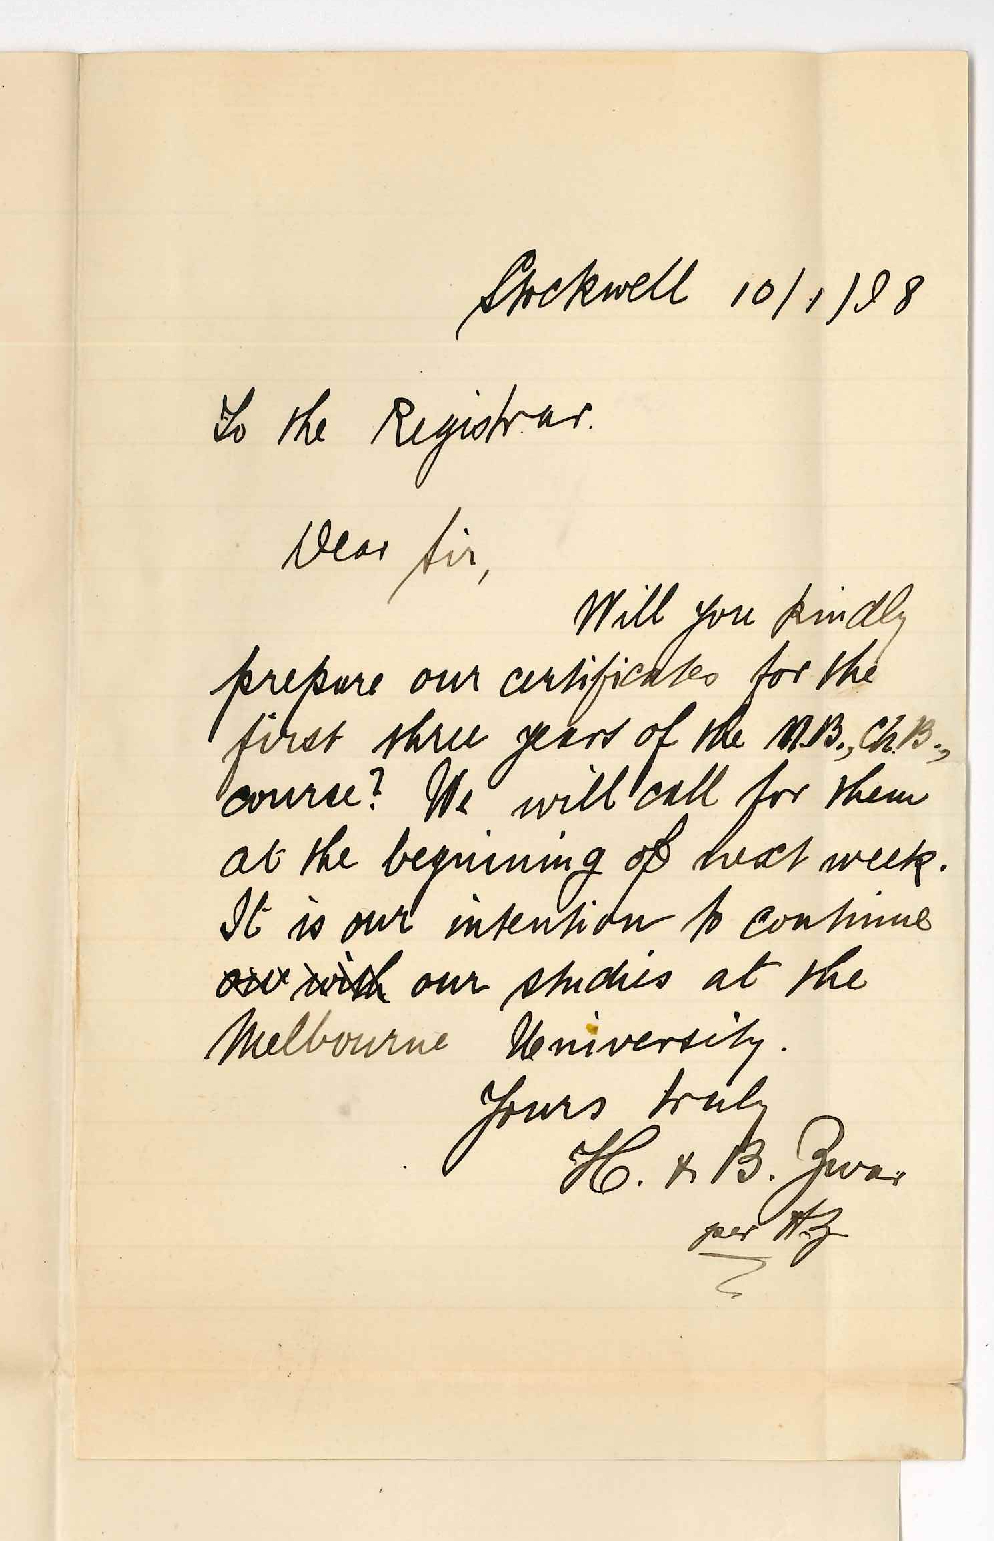 Stockwell 10/1/98
To the Registrar.
Dear Sir,
Will you kindly
prepare our certificates for the
first three years of the M.B., Ch.B.,
course? We will call for them
at the beginning of next week.
It is our intention to continue
on with our studies at the
Melbourne University.
Yours truly
H. & B. Zwar
per HZ